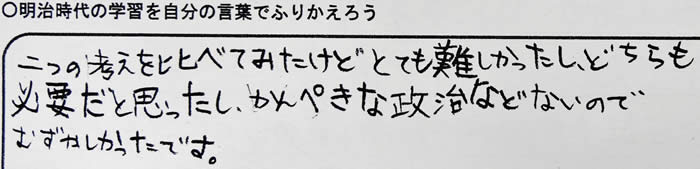 〇明治時代の学習を自分の言葉でふりかえろう
二つの考えを比べてみたけどとても難しかったし、どちらも
必要だと思ったし、かんぺきな政治などないので
むずかしかったです。